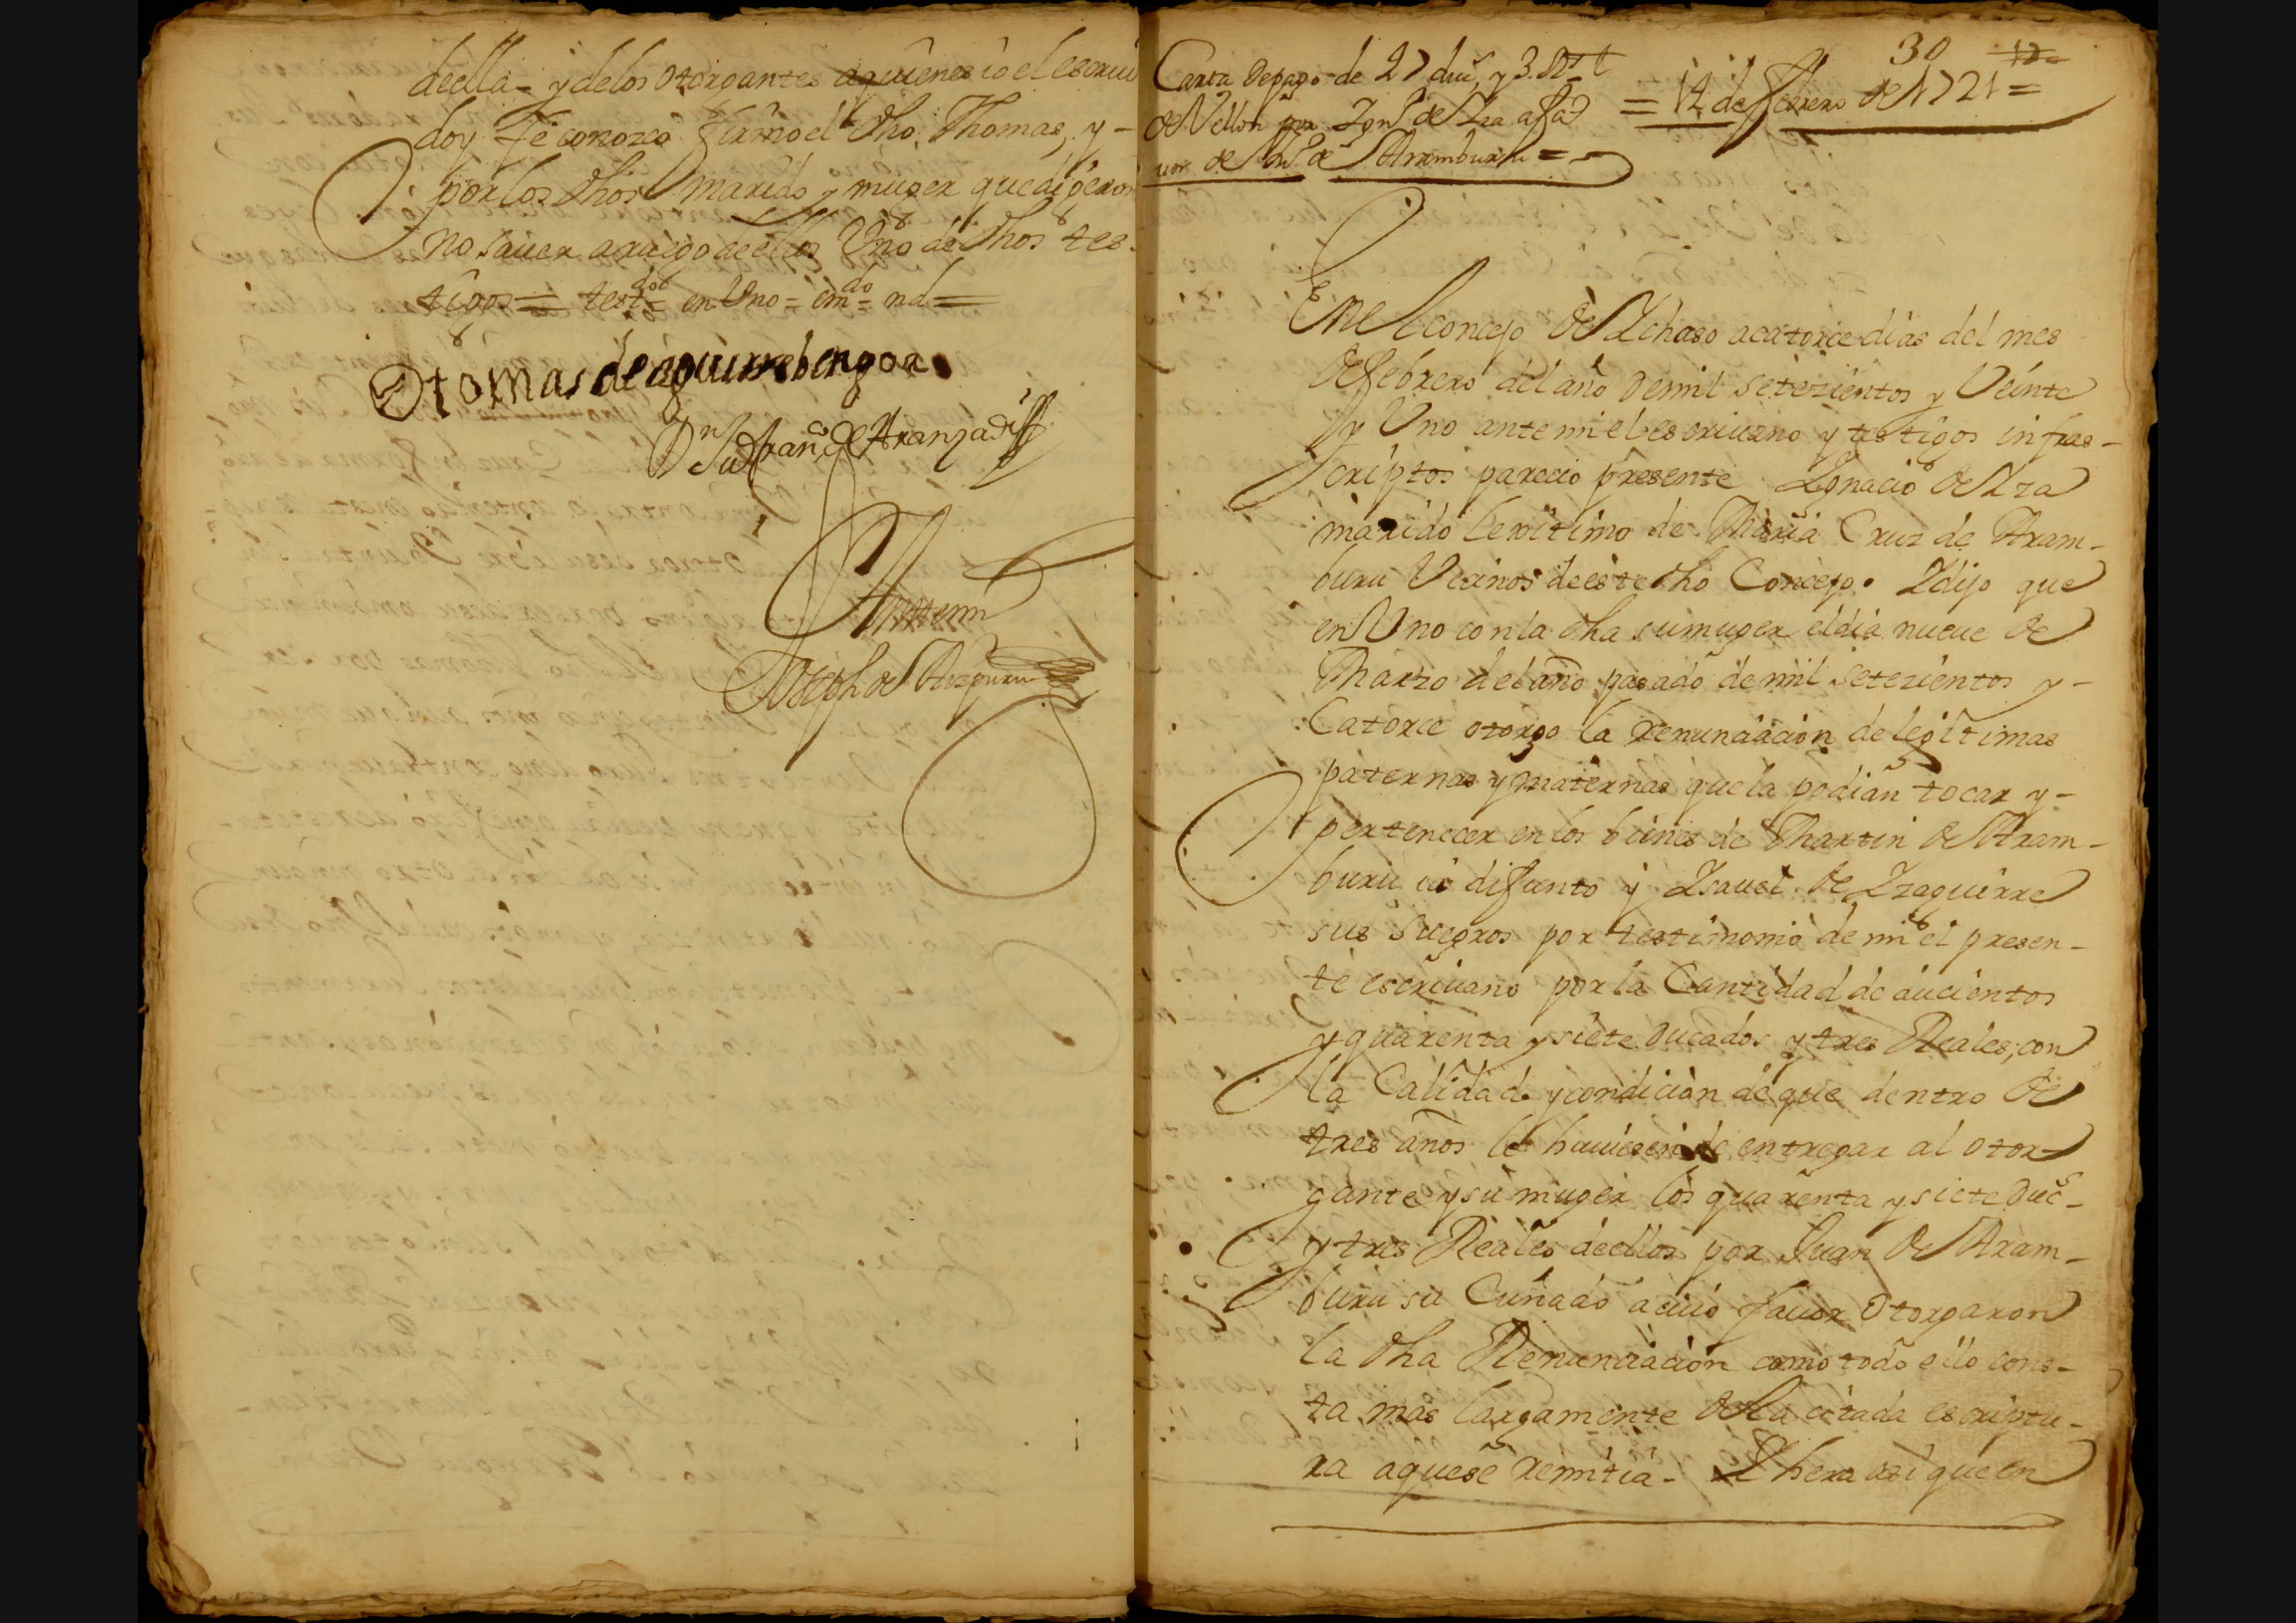 deella- y delos otorgantes aquienes io el escriu
doy fe conozco firmo el dho Thomas, y -
por los dhos marido y muger que dijeron
no sauer a ruego de ellos Uno de dhos tes-
tigos = testdos = en Uno = emdo = nd =
tomas de aguirrebengoa
Dn Juo Franco de Aranzadi
Ante mi
Joseph de Aizpuru
30
Carta de pago de 27 dus y 3 Rs
de Vellon por Igno de Iza a fa
uor de Juo de Aramburu =
= 14 de febrero de 1721 =
En el concejo de Ichaso a catorce dias del mes
de febrero del año de mil setezientos y Veinte
y Uno ante mi el escriuano y testigos infras-
criptos parecio presente Ignacio de Iza
marido lexitimo de Maria Cruz de Aram-
buru Vecinos de este dho Concejo. I dijo que
en Uno con la dha su muger el dia nueue de
Marzo del año pasado de mil setezientos y -
Catorce otorgo la renunciacion de legitimas
paternas y maternas que la podian tocar y -
pertenecer en los bienes de Martin de Aram-
buru ia difunto y Isauel de Izaguirre
sus Suegros por testimonio de mi el presen-
te escriuano por la Cantidad de ducientos
y quarenta y siete Ducados y tres Reales, con
la Calidad y condicion de que dentro de
tres años le huuiesen de entregar al otor-
gante y su muger los quarenta y siete Duc-
y tres Reales de ellos por Juan de Aram-
buru su Cuñado a cuio fauor Otorgaron
la dha Renunciacion como todo ello cons-
ta mas largamente de la citada escriptu-
ra a que se remitia - I hera asi que en